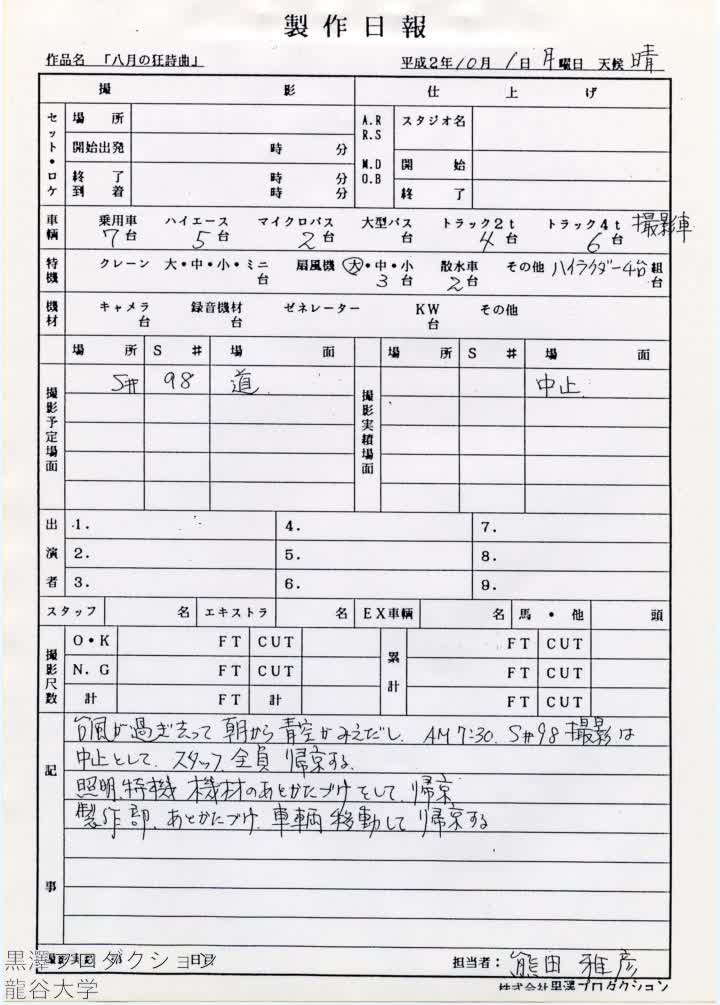 製作日報
作品名 「八月の狂詩曲」 平成2年10月1日月曜日 天候 晴
撮影 仕上げ
セット・ロケ 場所 A.R R.S M.D O.B スタジオ名
開始出発 時 分 開始
終了到着 時 分 時 分 終了
車輌 乗用車 7台 ハイエース 5台 マイクロバス 2台 大型バス 台 トラック2t 4台 トラック4t 6台 撮影車
特機 クレーン 大・中・小・ミニ 台 扇風機 大・中・小 3台 散水車 2台 その他 ハイライダー4台 組 台
機材 キャメラ 台 録音機材 台 ゼネレーター KW 台 その他
撮影予定場面 場所 S# 場面 撮影実績場面 場所 S# 場面
S# 98 道 中止
出演者 1. 4. 7.
2. 5. 8.
3. 6. 9.
スタッフ 名 エキストラ 名 EX車輌 名 馬・他 頭
撮影尺数 O・K FT CUT 累計 FT CUT
N.G FT CUT FT CUT
計 FT 計 FT CUT
記事
台風が過ぎ去って 朝から青空がみえだし、AM 7:30. S#98 撮影は
中止として、スタッフ全員 帰京する。
照明、特機 機材のあとかたづけをして、帰京
製作部、あとかたづけ、車輌移動して 帰京する
担当者: 熊田雅彦
株式会社黒澤プロダクション
黒澤プロダクション
龍谷大学